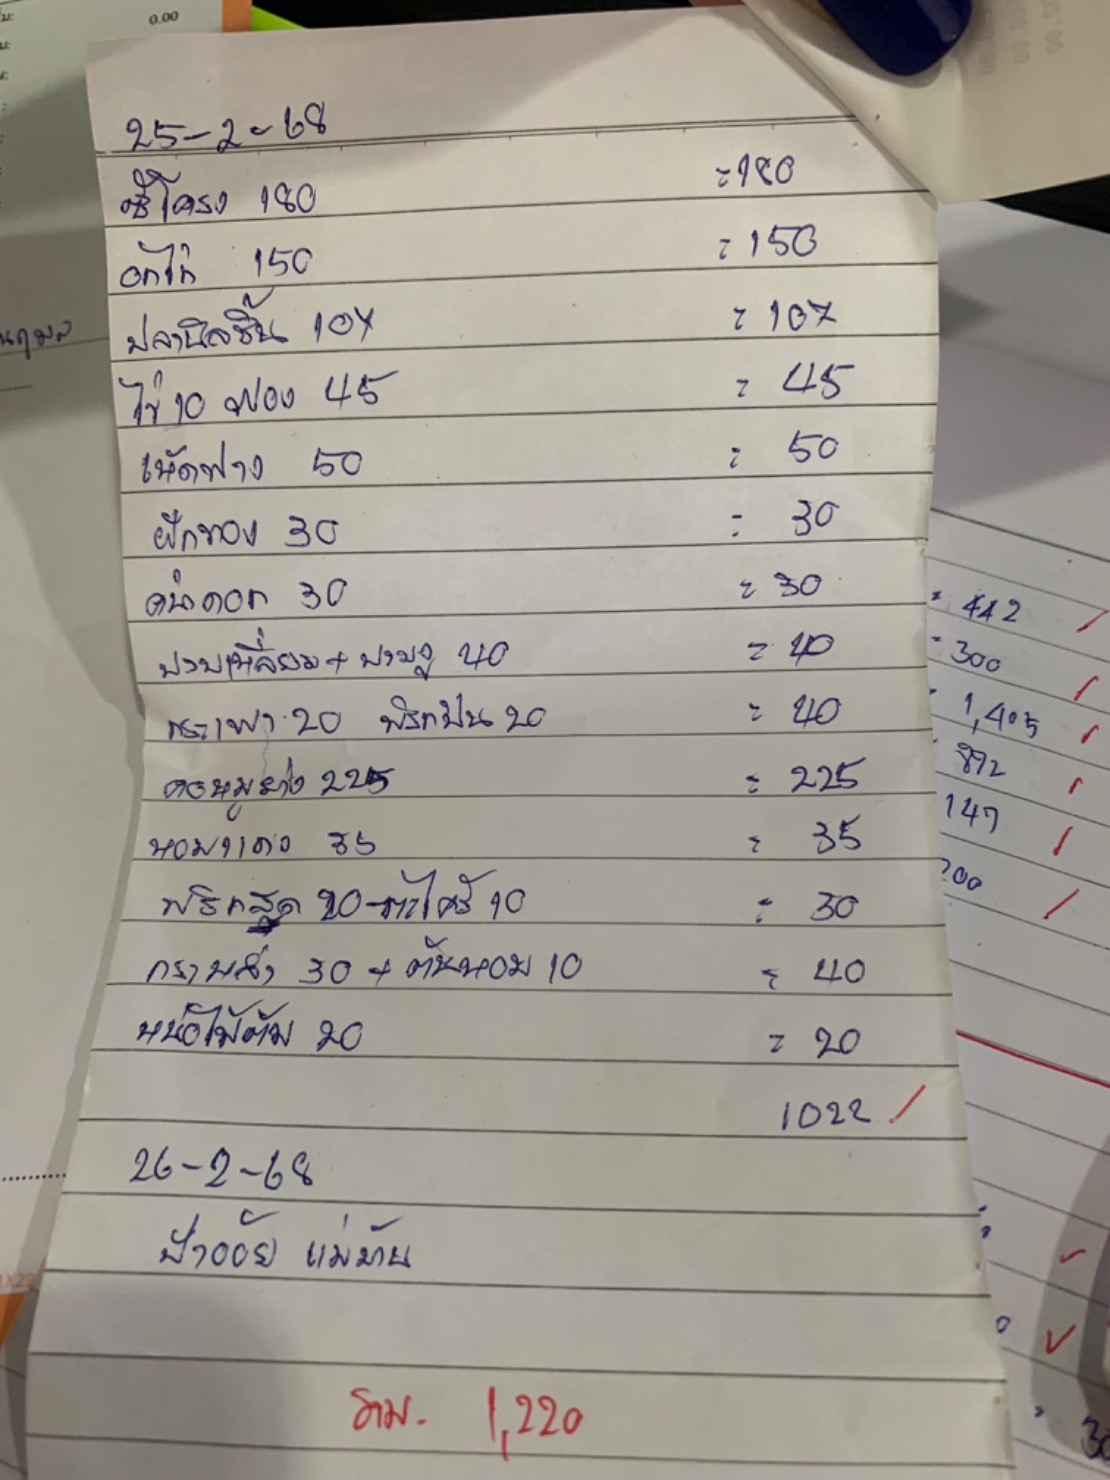 0.00
25-2-68
ซี่โครง 180 =180
อกไก่ 150 = 150
ปลานิลชิ้น 107 = 107
ไข่ 10 ฟอง 45 = 45
เห็ดฟาง 50 = 50
ฝักทอง 30 = 30
คน้าดอก 30 = 30
บวบเหลี่ยม + บวบงู 40 = 40
กระเพา 20 พริกป่น 20 = 40
คอหมูย่าง 225 = 225
หอมแดง 35 = 35
พริกสด 20-ตะไคร้ 10 = 30
กะหล่ำ 30 + ต้นหอม 10 = 40
หน่อไม้ต้ม 20 = 20
1022
26-2-68
ป้าออ้ย แม่บ้าน
รวม. 1,220
= 442
= 300
1,405
892
147
200